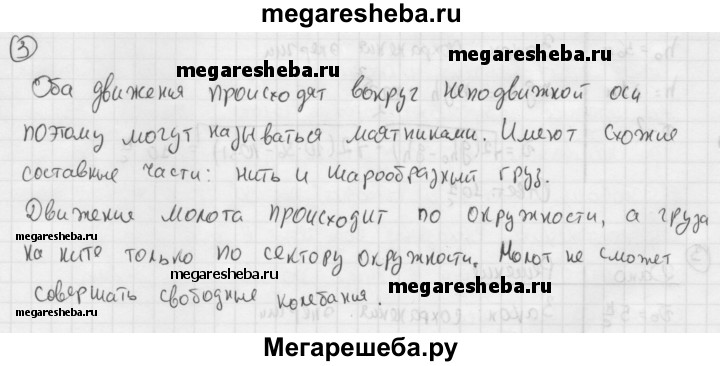 megaresheba.ru
3
megaresheba.ru
Оба движения происходят вокруг неподвижной оси
megaresheba.ru
поэтому могут называться маятниками. Имеют схожие
составные части: нить и шарообразный груз.
Движение молота происходит по окружности, а груза
megaresheba.ru
на ните только по сектору окружности. Молот не сможет
megaresheba.ru
megaresheba.ru
совершать свободные колебания.
megaresheba.ru
Мегарешеба.ру